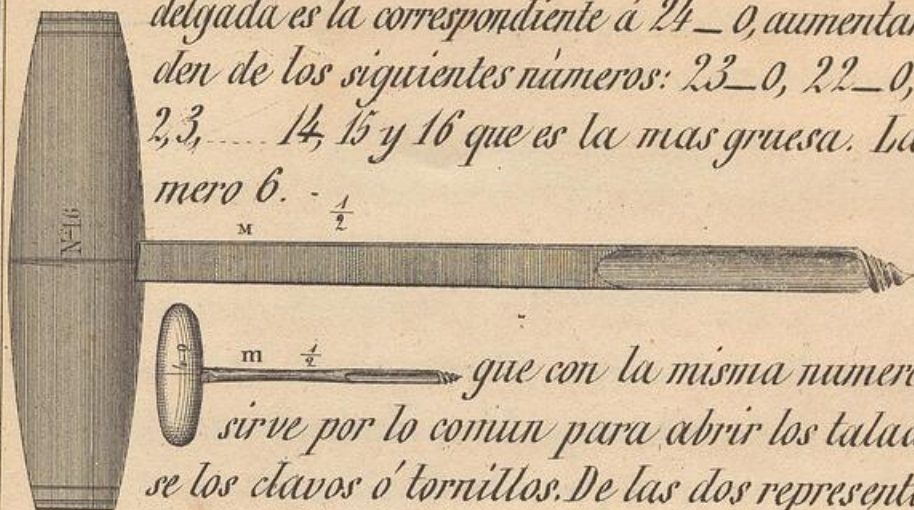 delgada es la correspondiente á 24_0, aumentan
den de los siguientes números: 23_0, 22_0,
2,3,..... 14, 15 y 16 que es la mas gruesa. La
mero 6. -
1/2
M
Nº 16
m
1/2
que con la misma numer
sirve por lo comun para abrir los talad
se los clavos ó tornillos. De las dos represent